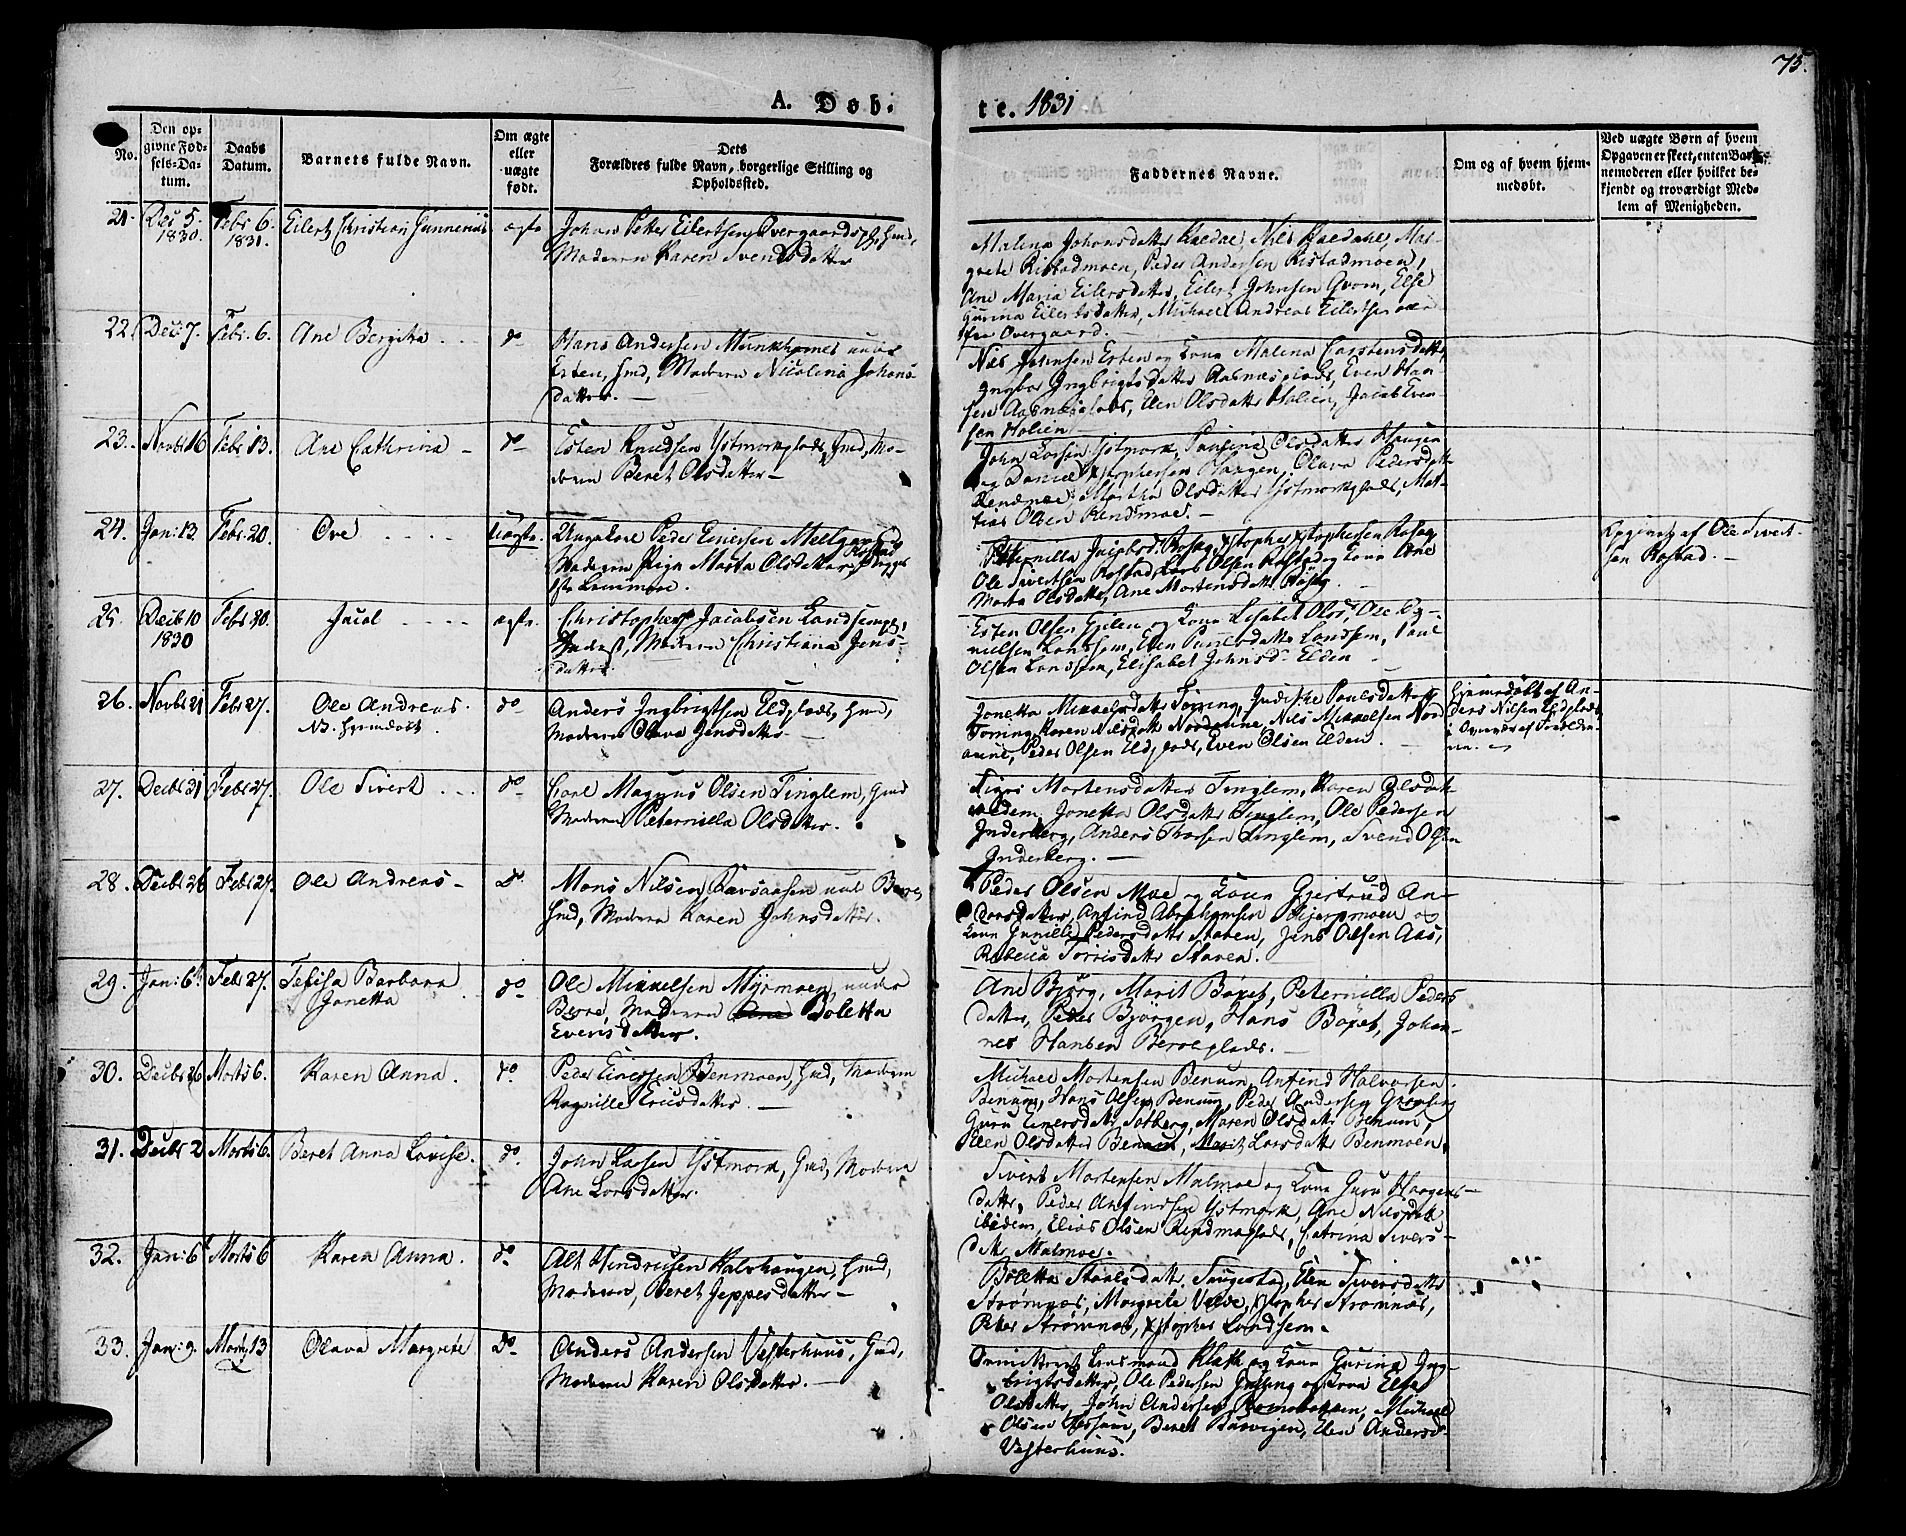 75.
A. Døb-
te. 1831
No.
Den op-
givne Fød-
sels-Da-
tum.
Daabs
Datum.
Barnets fulde Navn.
Om ægte
eller
uægte
født.
Dets
Forældres fulde Navn, borgerlige Stilling og
Opholdssted.
Faddernes Navne.
Om og af hvem hjem-
medøbt.
Ved uægte Børn af hvem
Opgaven er skeet, enten Bar-
nemoderen eller hvilket be-
kjendt og troværdigt Med-
lem af Menigheden.
21. Dec: 5. Febr. 6. Eilert Christian Gunnerius ægte Johan Petter Eilertsen Overgaards
1830. 1831. Moderen Karen Svendsdatter
Malena Johansdatter Kaldal, Nils Kaldahl, Mar-
grete Ristadmoen, Peder Andersen Ristadmoen,
Ane Maria Eilersdatter, Eilert Johnsen Qvam, Else
Gurina Eilertsdatter, Michael Andreas Eilertsen
Overgaard.
22. Dec: 7. Febr. 6. Ane Bergitta do Hans Andersen Munkhames under
Esten, Hmd, Moderen Nicolina Johans
datter.
Nils Johnsen Esten og Kone Malena Carstensdatter
Ingbor Ingbrigtsdatter Aasnæsplads, Even Han-
sen Aasnæsplads, Elen Olsdatter Holien, Jacob Even-
sen Holien
23. Novbr 16 Febr 13. Ane Cathrina do Esten Knudsen Ystmarkplads, Hmd, Mo-
deren Beret Olsdatter
John Larsen Ystmark, Paulina Olsdatter Haugen
og Daniel Xstophersen Haugen, Olava Pedersdatter
Rendmoe, Martha Olsdatter Ystmarkplads, Mat-
tias Olsen Rendsmoe.
24. Jan: 13. Febr 20. Ove uægte Ungekarl Peder Einersen Melgaard
Moderen Pige Marta Olsdatter
Peternilla Jacobsd. Rosæg, Xstopher Xstophersen Rosæg
Ole Sivertsen Rostad, Lars Olsen Rostad og Kone Ane
Marta Olsdatter, Ane Mortensdatter Rosæg.
Opgivet af Ole Sivert-
sen Rostad.
25. Decbr 10 Febr 20. Jacob ægte. Christopher Jacobsen Landsem
1830 Moderen Christiana Jens-
datter
Esten Olsen Gjelen og Kone Lisabet Olsd, Ole
nielsen Landsem, Even Paulsdatter Landsem, Paul
Olsen Landsem, Elisabet Johnsd. Elden
26. Novbr 21 Febr 27. Ole Andreas. do Anders Ingbrigtsen Eldplads, Hmd,
NB. Hjemdøbt. Moderen Olava Jensdatter
Jonetta Mikkelsdatter Tørring, Paulsdatter
Tørring, Karen Nilsdatter Nordaune, Nils Mikkelsen Nord
aune, Peder Olsen Eldplads, Even Olsen Elden.
Hjemmedøbt af An-
ders Nilsen Eldplads,
i Overvær af Forældre-
ne.
27. Decbr 31 Febr 27. Ole Sivert do Carl Magnus Olsen Tinglem, Hmd
Moderen Peternilla Olsdatter.
Mortensdatter Tinglem, Karen Olsdatter
ibidem, Jonetta Olsdatter Tinglem, Ole Pedersen
Inderberg, Anders Thorsen Tinglem, Svend Olsen
Inderberg.
28. Decbr 26 Febr 27. Ole Andreas do Mons Nilsen Ravsaasen under Berre,
Hmd, Moderen Karen Johnsdatter.
Peder Olsen Moe og Kone Gjertrud An-
dorsdatter, Anfind Abrahamsen Skjerpmoen og
Kone Gunille Pedersdatter Staven, Jens Olsen Aas,
Rebecca Torrisdatter Staven.
29. Jan: 6. Febr 27. Tefisa Barbara do Ole Mikkelsen Myrmoen under
Jonetta Berre, Moderen Boletta
Evensdatter.
Ane Bjørg, Marit Boxet, Peternilla Peders
datter, Peder Bjørgen, Hans Boxet, Johan-
nes Hansen Berreplads.
30. Decbr 26 Marts 6. Karen Anna. do. Peder Einersen Benmoen, Hmd, Moderen
Ragnille Ericsdatter.
Michael Mortensen Benum, Anfind Halvorsen
Benum, Hans Olsen Benum, Peder Andersen Grønberg
Guru Einersdatter Solberg, Maren Olsdatter Benum,
Elen Olsdatter Benum, Marit Larsdatter Benmoen.
31. Decbr 2 Marts 6. Beret Anna Lovise. do. John Larsen Ystmark, Hmd, Moderen
Ane Larsdatter.
Sivert Mortensen Malmoe og Kone Guru Haagens-
datter, Peder Anfindsen Ystmark, Ane Nilsdatter
ibidem, Elias Olsen Rindmoplads, Catrina Sivers-
datter Malmoe.
32. Jan: 6 Marts 6 Karen Anna. do Alt Hindricsen Kalvhaugen, Hmd,
Moderen, Beret Jeppesdatter
Boletta Staalsdatter Saugestad, Elen Siversdatter
Strømnæs, Margrete Velve, Xstopher Strømnæs,
Peter Strømnæs, Xstopher Landsem.
33. Jan: 9. Marts 13 Olava Margrete do Anders Andersen Vesterhuus, Hmd,
Moderen Karen Olsdatter.
Kone Gurina Ing-
brigtsdatter, Ole Pedersen og Kone Else
Olsdatter, John Andersen Michael
Olsen Beret Elen Andersd.
Vesterhuus.